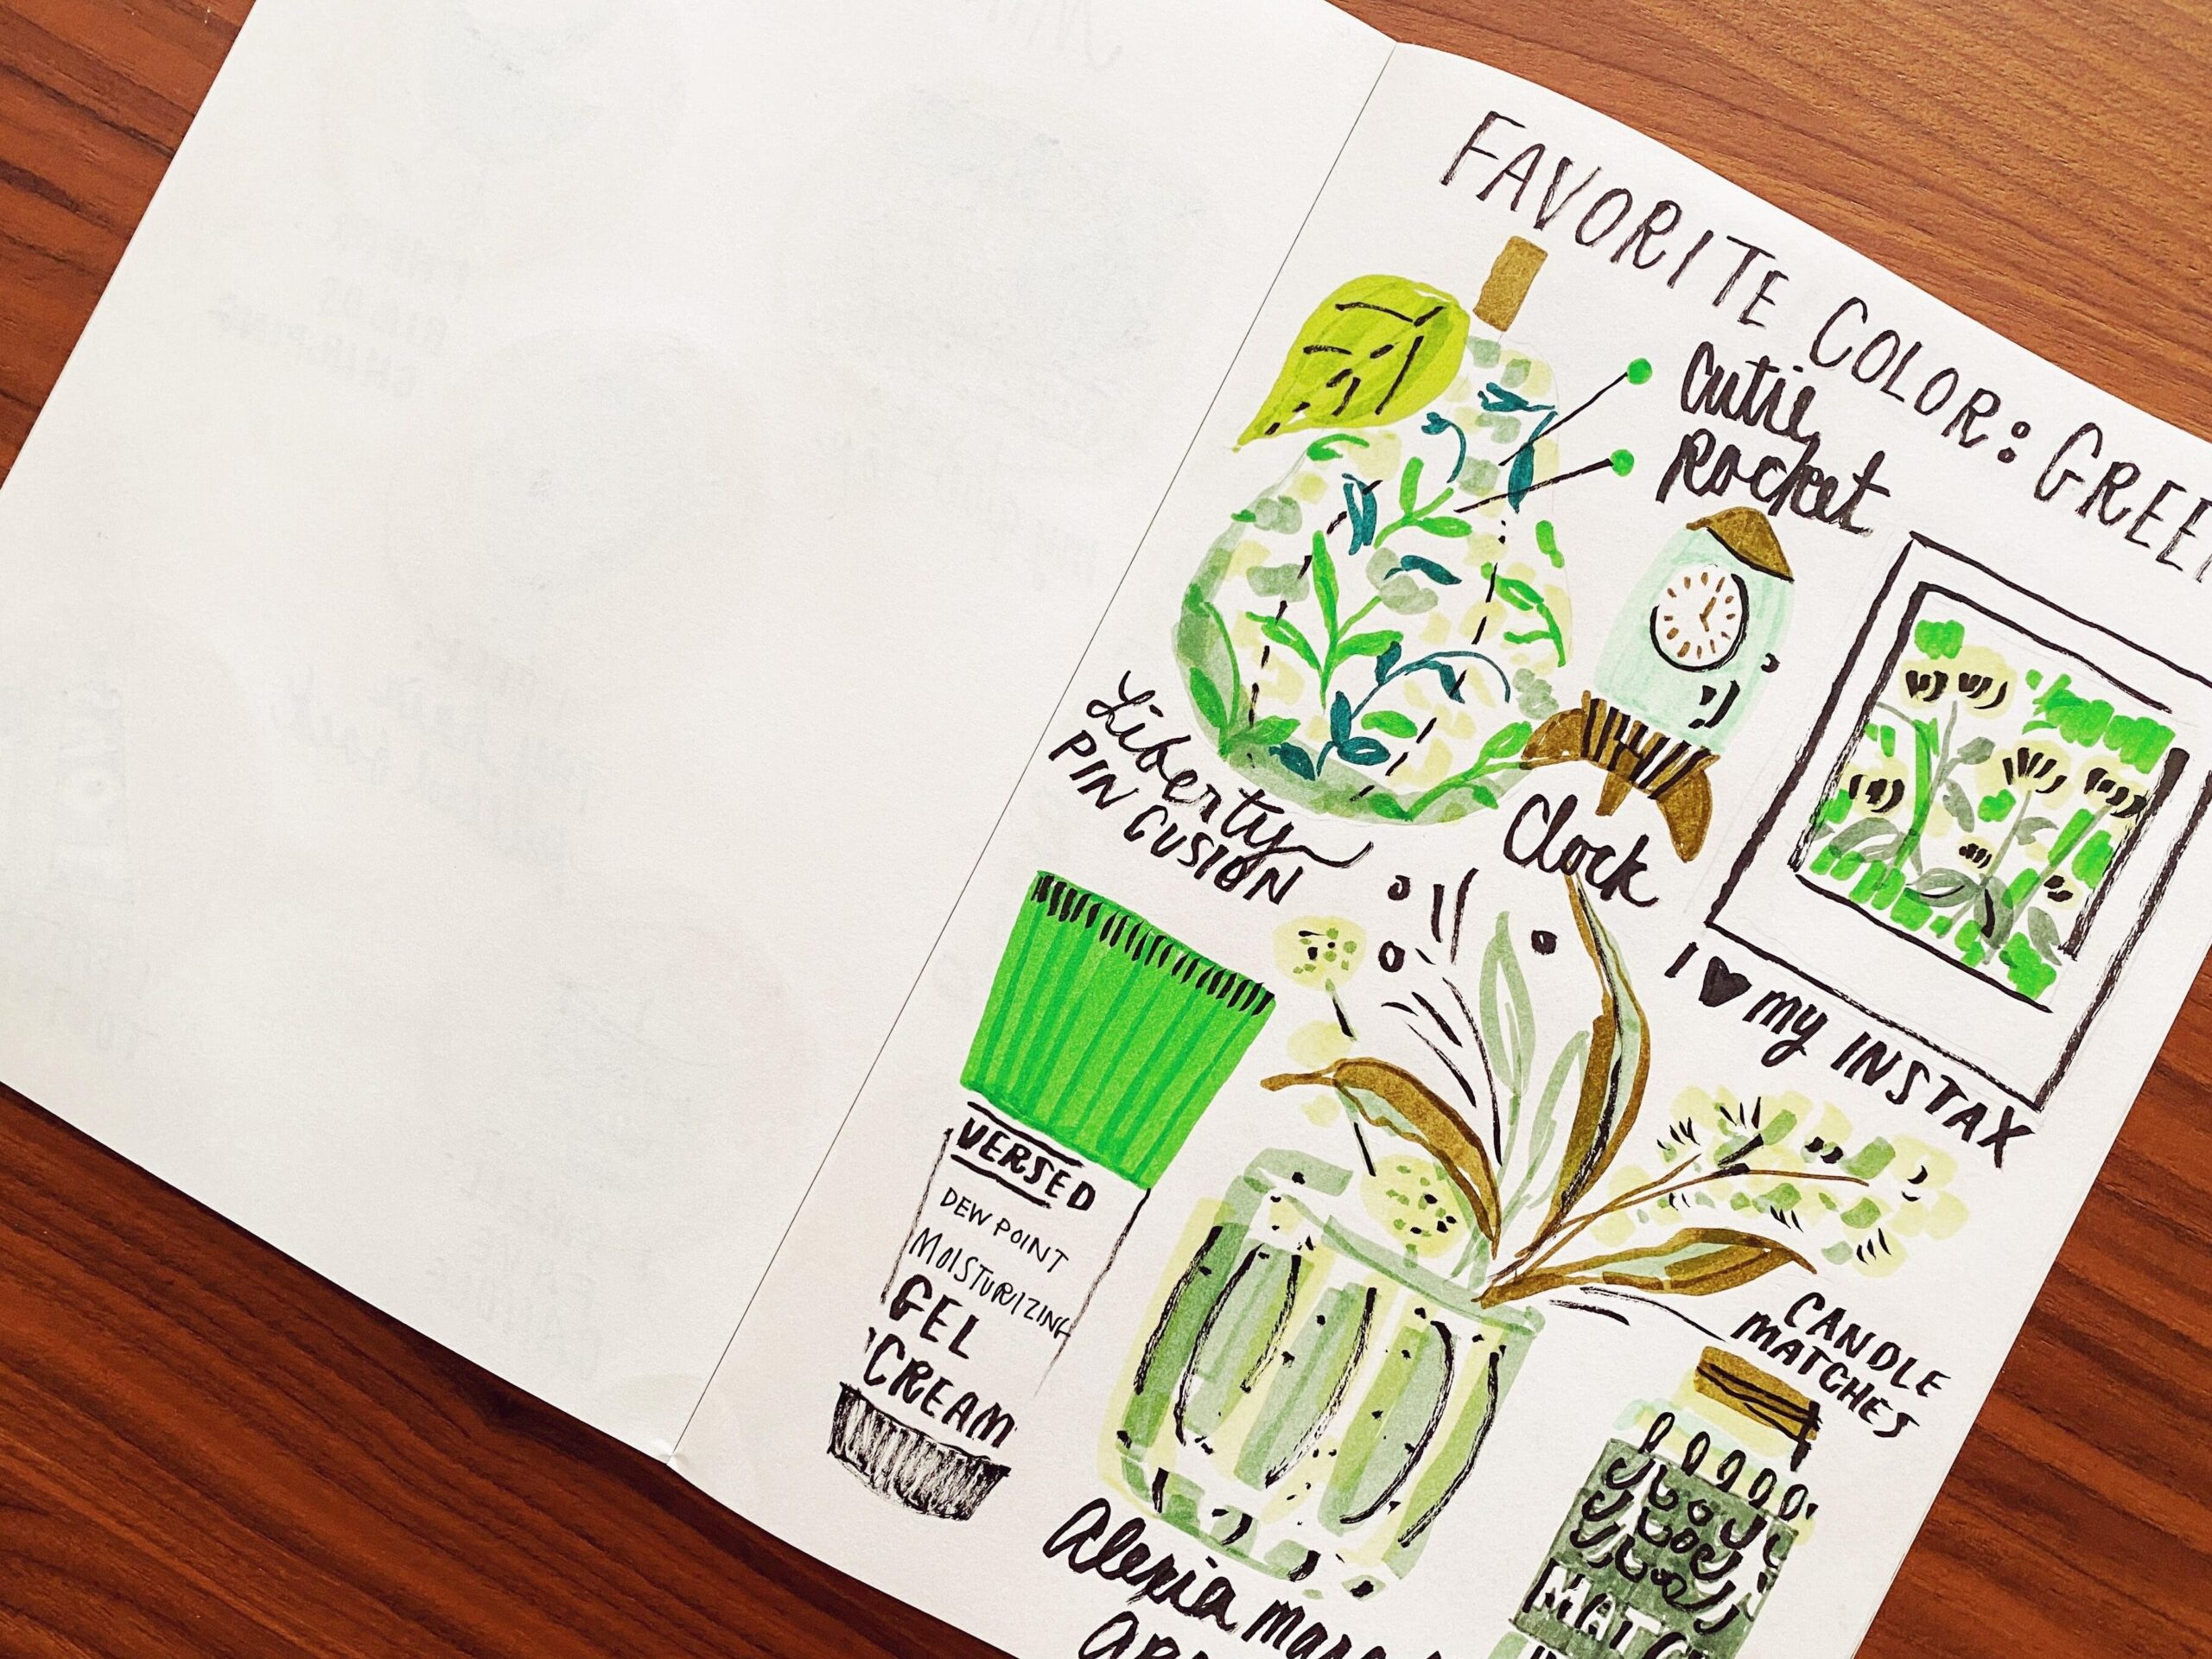 FAVORITE COLOR: GREEN
Cutie
Rocket
Clock
Liberty
PIN CUSION
I ♥ my INSTAX
VERSED
DEW POINT
MOISTURIZING
GEL
CREAM
CANDLE
MATCHES
Alexia